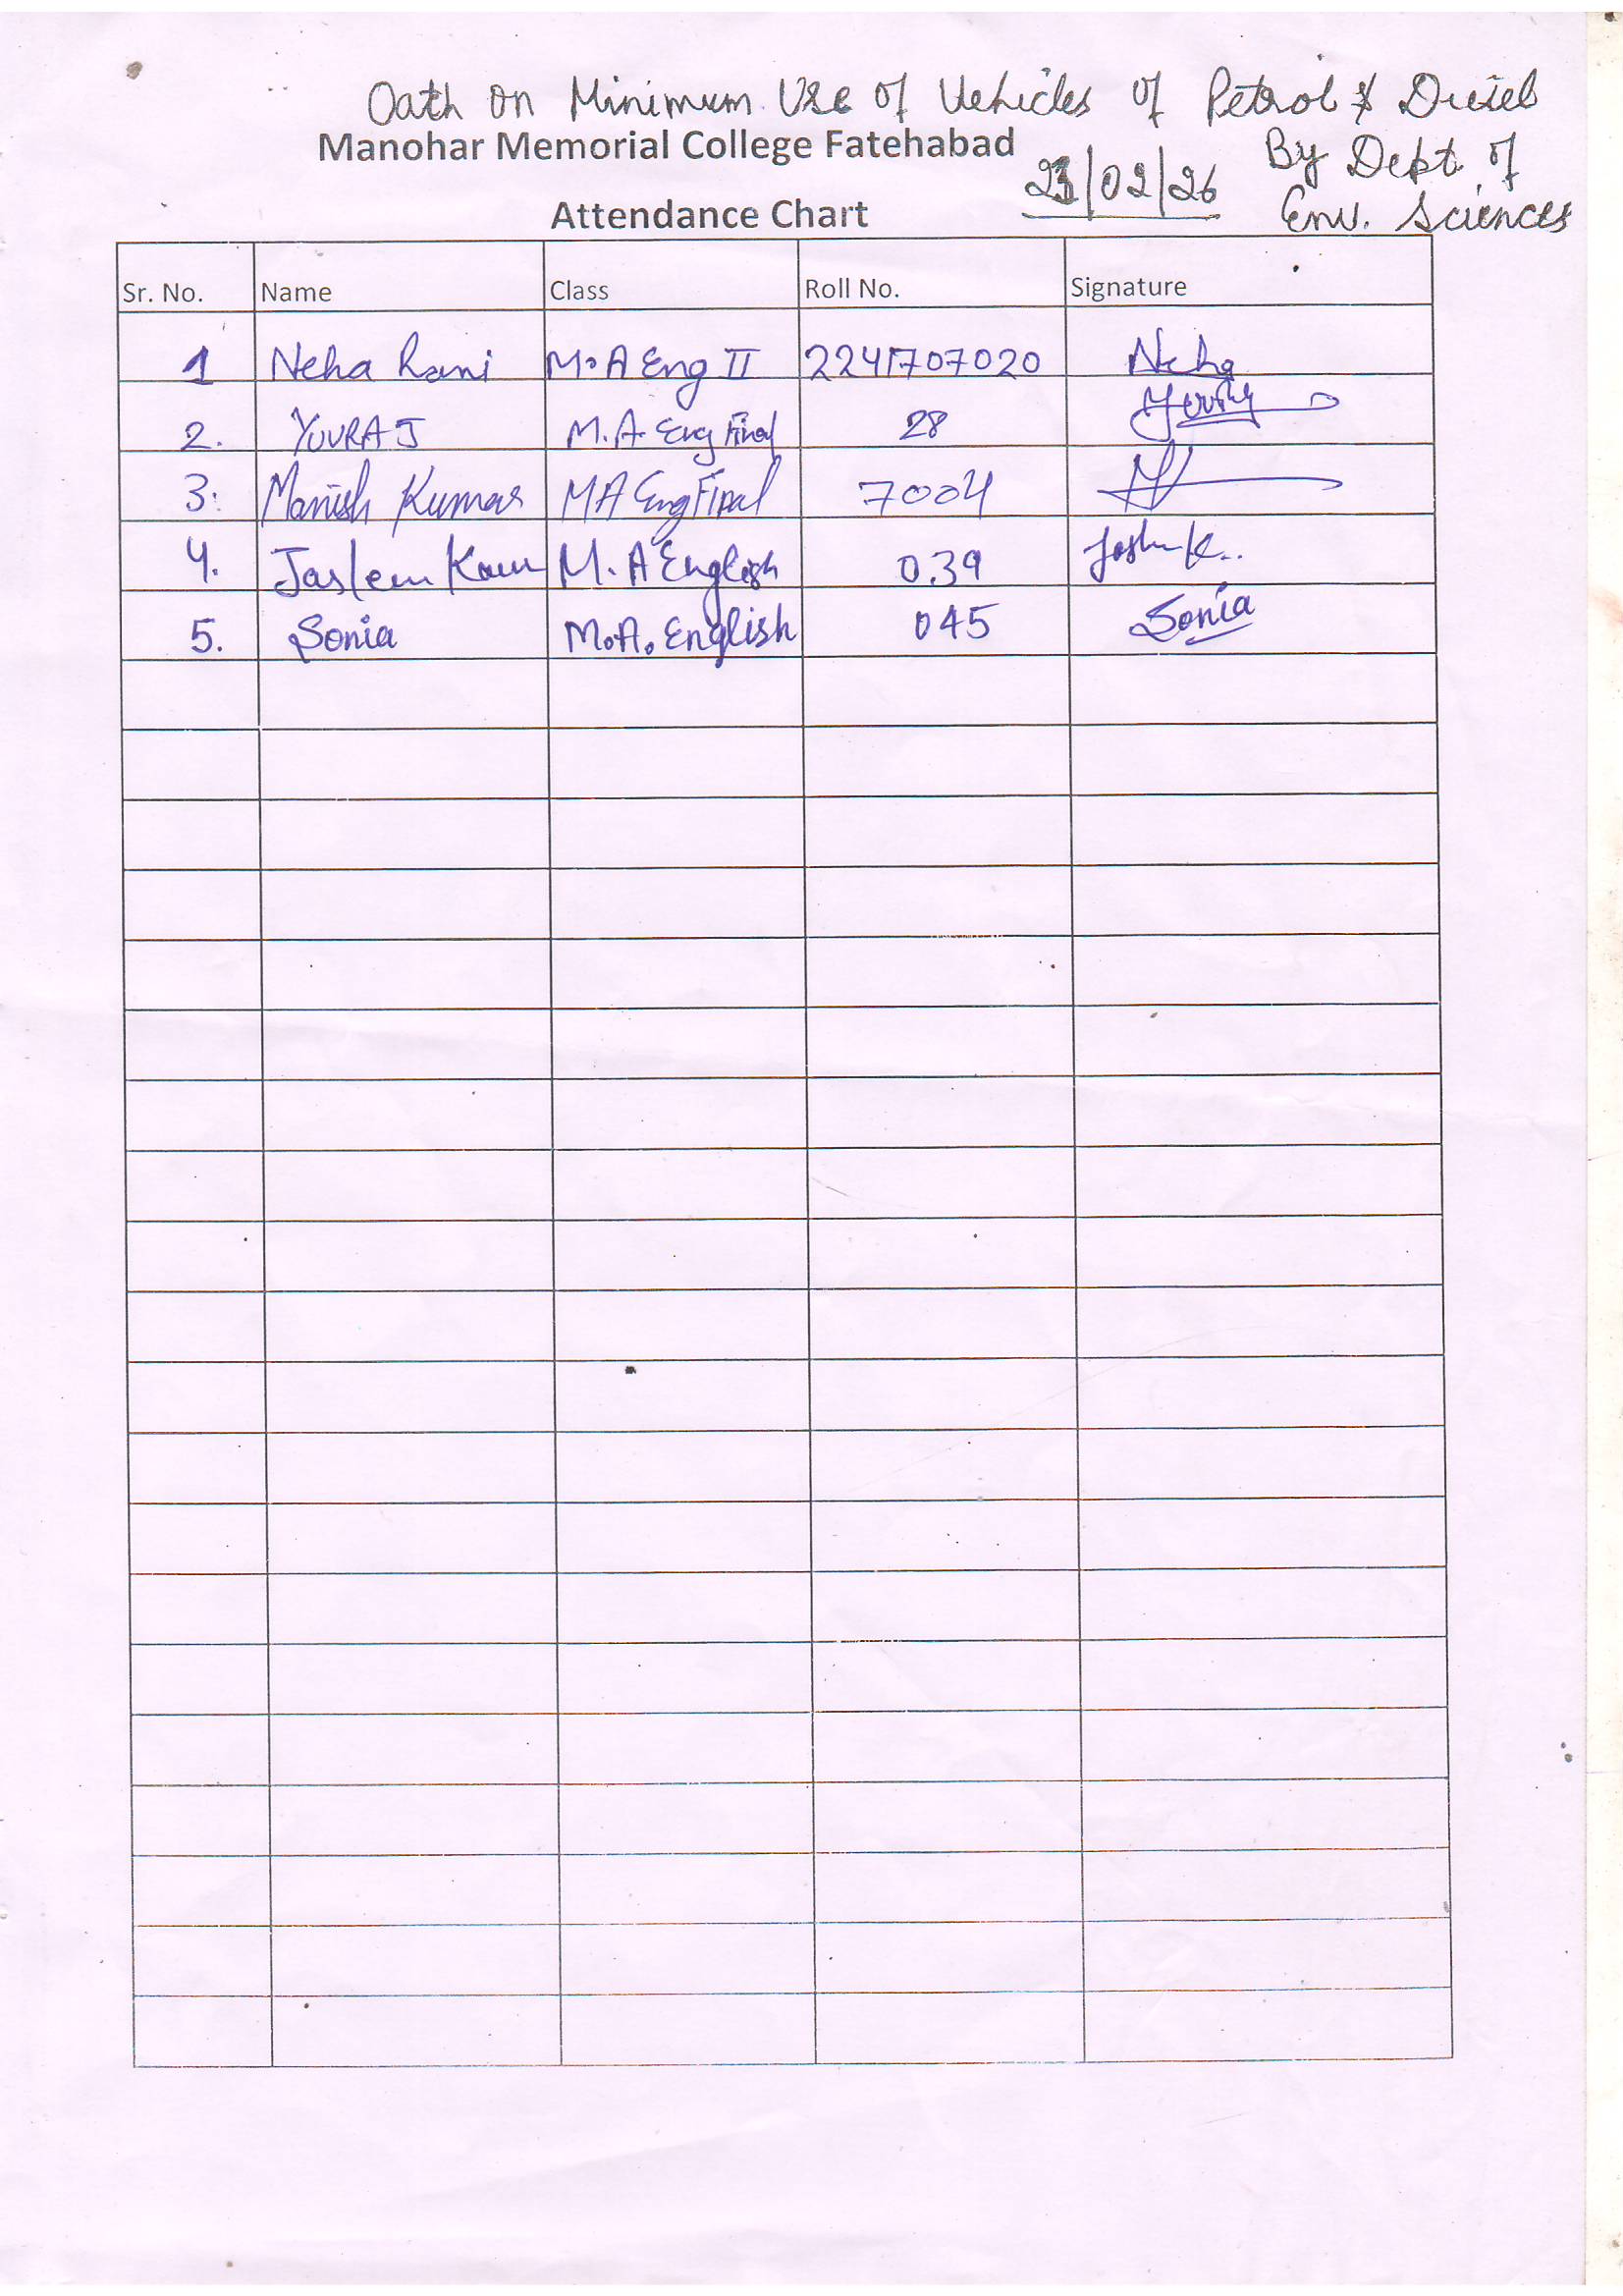 Oath on Minimum Use of Vehicles of Petrol & Diesel
Manohar Memorial College Fatehabad
23/02/26 By Dept. of
Attendance Chart Env. Sciences
Sr. No. Name Class Roll No. Signature
1 Neha Rani M.A Eng II 2241707020 Neha
2. YUVRAJ M.A. Eng Final 28
3. Manish Kumar MA Eng Final 7004
4. Jasleen Kaur M.A English 039
5. Sonia M.A. English 045 Sonia